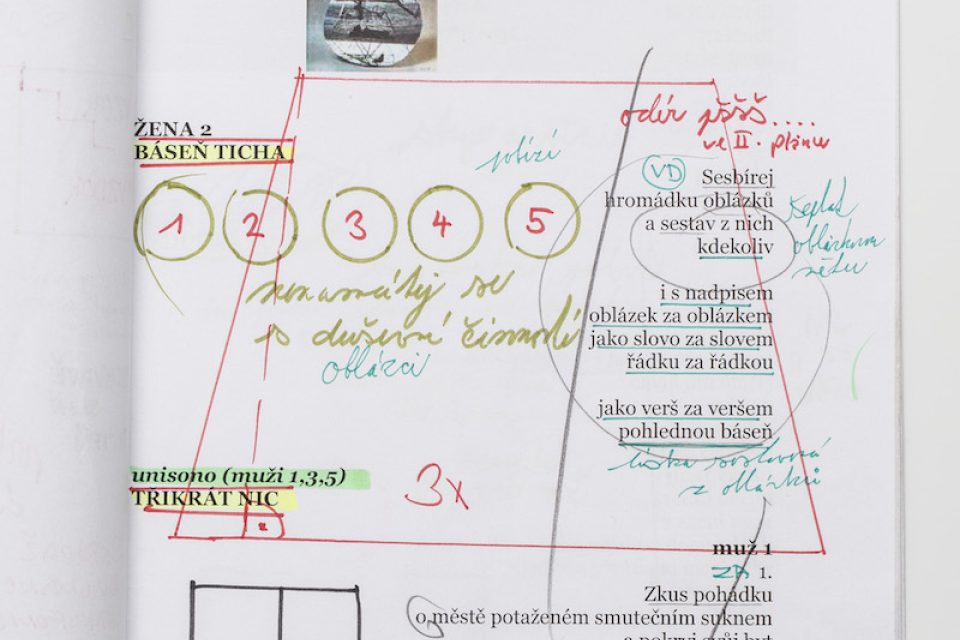 odér pššš....
ve II. plánu
ŽENA 2
BÁSEŇ TICHA
VD
Sesbírej
hromádku oblázků
a sestav z nich
kdekoliv
1 2 3 4 5
šeptat
i s nadpisem
oblázek za oblázkem
jako slovo za slovem
řádku za řádkou
se
duševní činností
oblázci
jako verš za veršem
pohlednou báseň
z oblázků
unisono (muži 1,3,5)
TŘIKRÁT NIC
3x
muž 1
1.
Zkus pohádku
o městě potaženém smutečním suknem